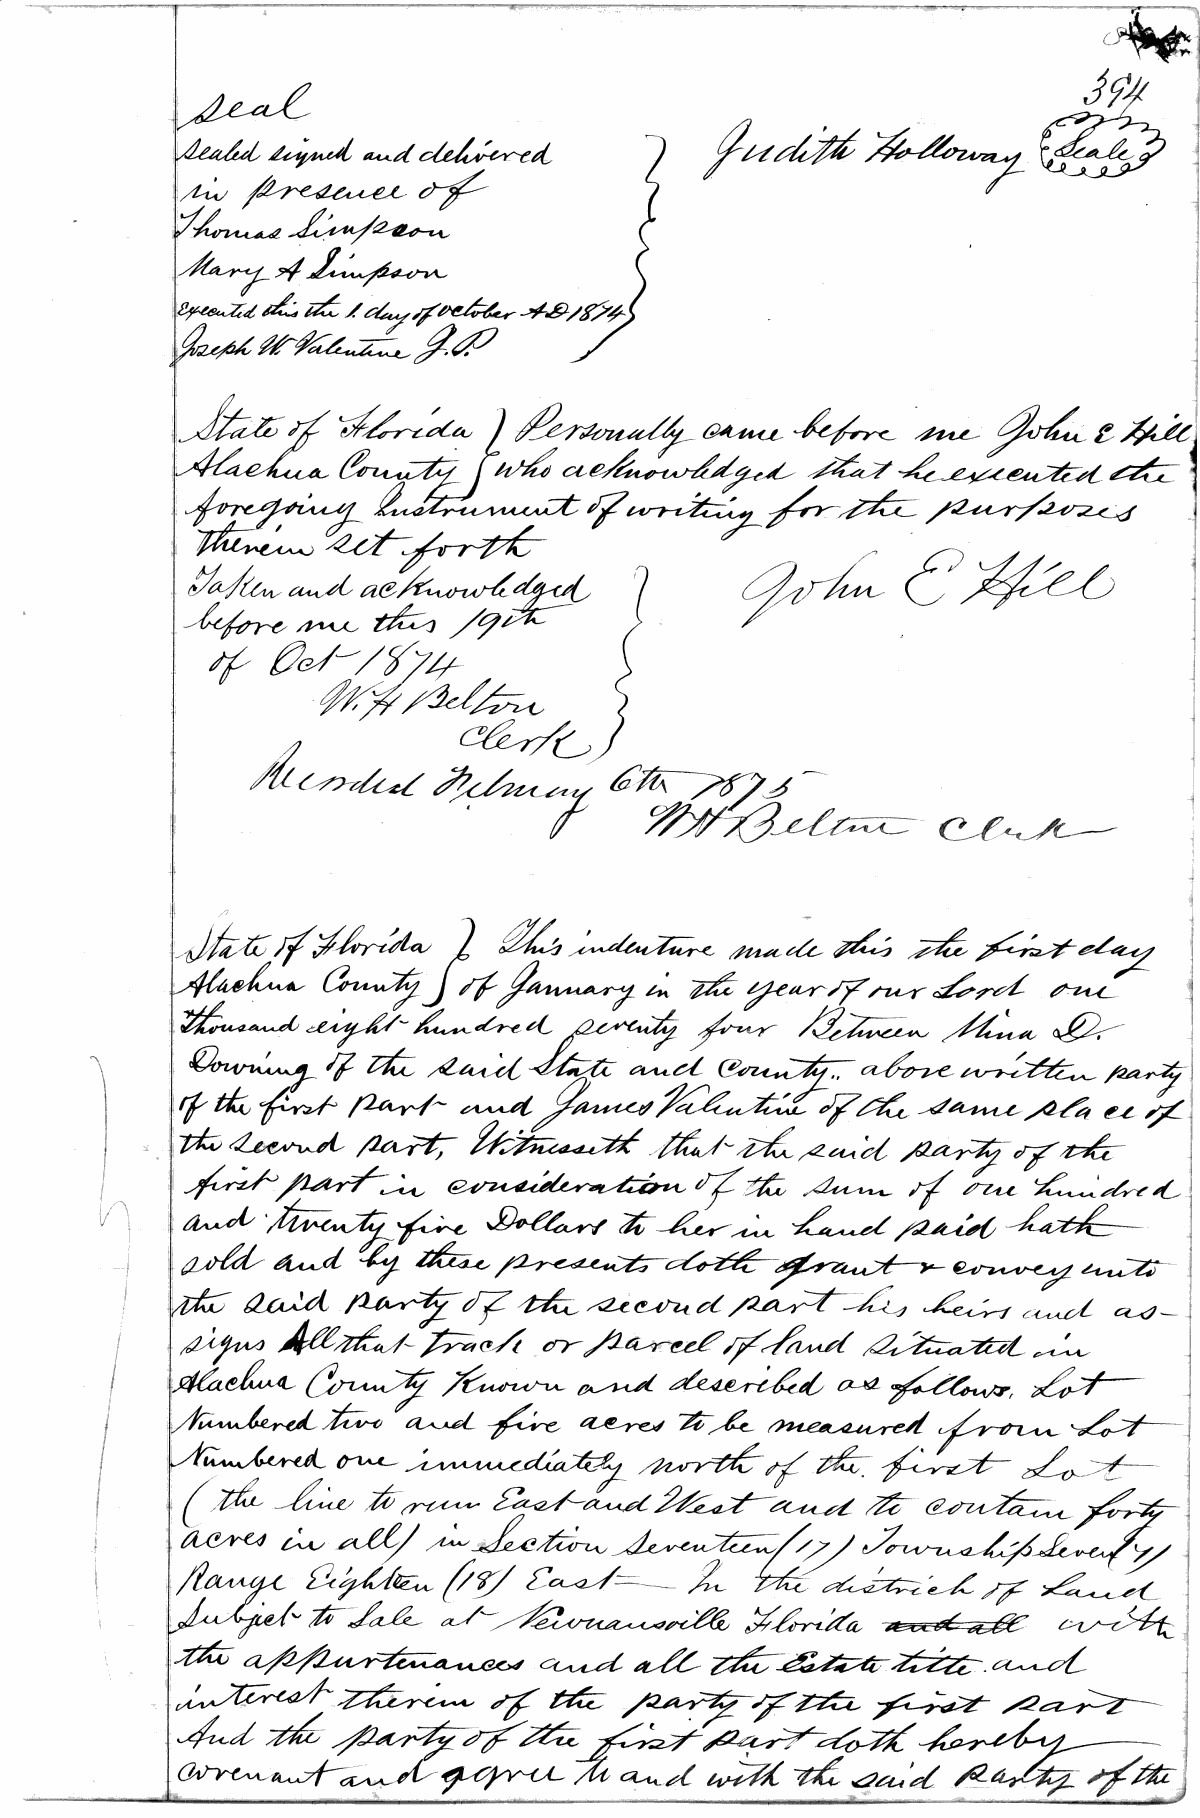 394
seal
sealed signed and delivered
in presence of
Thomas Simpson
Mary A Simpson
Executed this the 1. day of October AD 1874
Joseph W. Valentine J. P.
Judith Holloway Seale
State of Florida } Personally came before me John E Hill
Alachua County } who acknowledged that he executed the
foregoing Instrument of writing for the purposes
therein set forth
Taken and acknowledged
before me this 19th
of Oct 1874
W. H Belton
Clerk
John E Hill
Recorded February 6th 1875
W H Belton Clerk
State of Florida } This indenture made this the first day
Alachua County } of January in the year of our Lord one
Thousand eight hundred seventy four Between Mina D.
Downing of the said State and County.. above written party
of the first part and James Valentine of the same place of
the second part, Witnesseth that the said party of the
first part in consideration of the sum of one hundred
and twenty five Dollars to her in hand paid hath
sold and by these presents doth grant & convey unto
the said party of the second part his heirs and as-
signs All that track or parcel of land situated in
Alachua County Known and described as follows. Lot
Numbered two and five acres to be measured from Lot
Numbered one immediately north of the. first Lot
( the line to run East and West and to contain forty
acres in all) in Section Seventeen (17) Township Seven (7)
Range Eighteen (18) East — In the district of Land
Subject to Sale at Newnansville Florida and all with
the appurtenances and all the Estate title and
interest therein of the party of the first part
And the party of the first part doth hereby
covenant and agree to and with the said Party of the